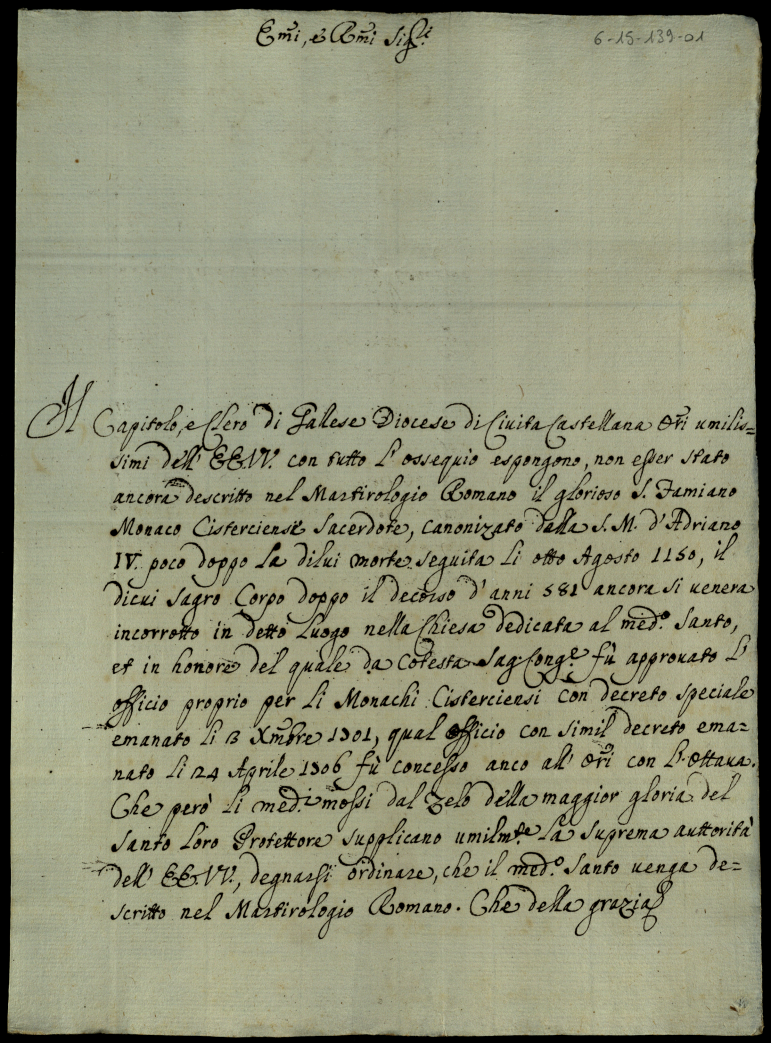 Emi, e Rmi Sigri
6-15-139-01
Il Capitolo, e Clero di Gallese Diocese di Civita Castellana Ori umilis=
simi dell' EE. VV. con tutto l'ossequio espongono, non esser stato
ancora descritto nel Martirologio Romano il glorioso S. Famiano
Monaco Cisterciense Sacerdote, canonizato dalla S. M. d'Adriano
IV. poco doppo la dilui morte seguita li otto Agosto 1150, il
dicui sagro Corpo doppo il decorso d'anni 581 ancora si venera
incorrotto in detto Luogo nella Chiesa dedicata al medo. Santo,
et in honore del quale da cotesta Sag: Conge. fù approvato l'
officio proprio per li Monachi Cisterciensi con decreto speciale
emanato li 13 Xmbre 1701, qual officio con simil decreto ema=
nato li 24 Aprile 1706 fù concesso anco all' Ori con l'ottava.
Che però li medi. mossi dal zelo della maggior gloria del
Santo loro Protettore supplicano umilmte la suprema auttorità
dell' EE. VV., degnarsi ordinare, che il medo. Santo venga de=
scritto nel Martirologio Romano. Che della grazia